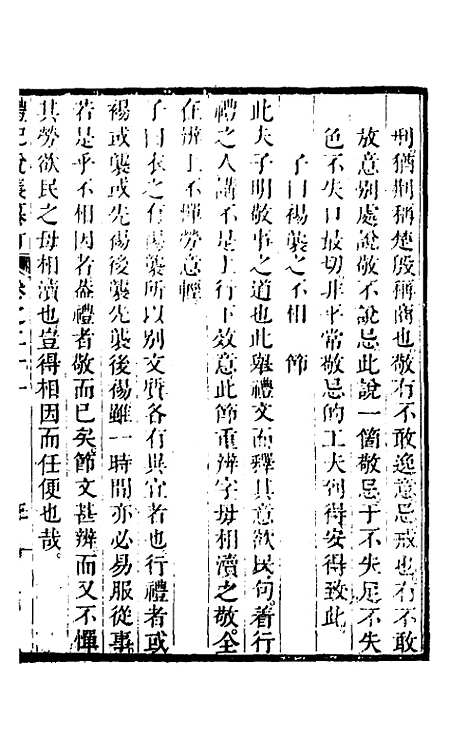 刑猶荆稱楚殷稱商也敬有不敢逸意忌戒也有不敢
放意别處說敬不說忌此說一箇敬忌于不失足不失
色不失口最切非平常敬忌的工夫刑得安得致此
子曰裼襲之不相　節
此夫子明敬事之道也此舉禮文而釋其意欲民句。着行
禮之人講不是上行下效意此節重辨字毋相瀆之敬。全
在辨上不憚勞意輕
子曰衣之有裼襲所以别文質各有異宜者也行禮者或
裼或襲或先裼後襲先襲後裼雖一時間亦必易服從事
若是乎不相因者葢禮者敬而已矣。節文甚辨而又不憚
其勞欲民之毋相瀆也豈得相因而任便也哉。
禮記說義纂訂　卷之二十